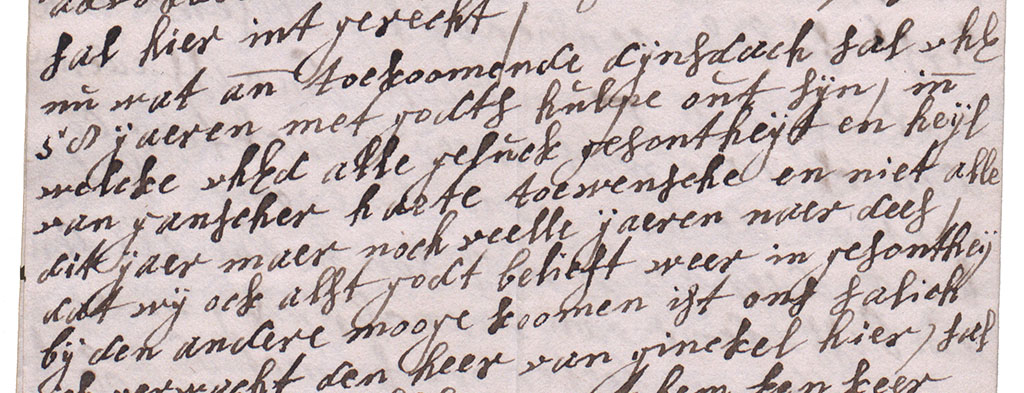 sal hier int gerecht /
nu wat an toekoomende dynsdach sal uhE
58 yaeren met godts hulpe out syn / in
welcke uhEd alle geluck gesontheyt en heyl
van ganscher harte toewensche en niet alle
dit yaer maer noch veelle yaeren naer dees /
dat wy ock alst godt belieft weer in gesonthey
by den andere mooge koomen ist ons salich
verwacht den heer van ginckel hier / sal
hem een keer